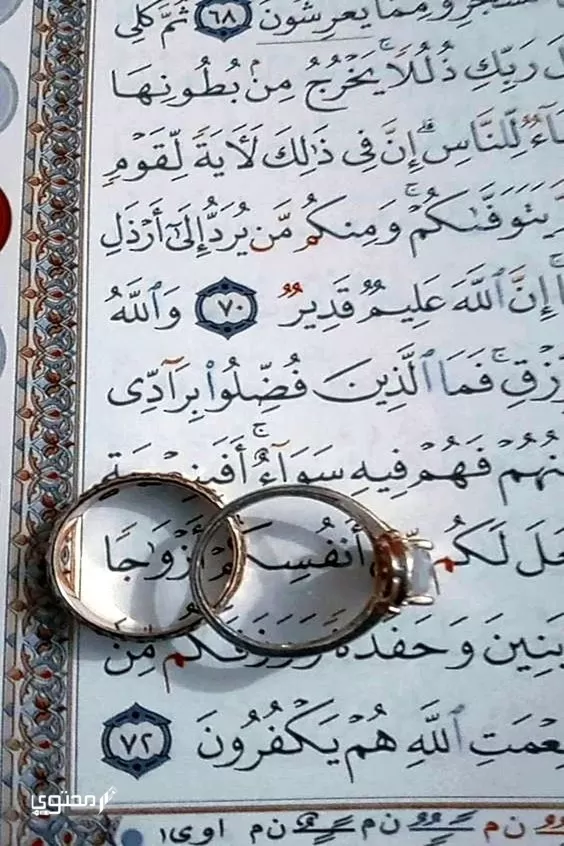 يَعْرِشُونَ ٦٨ ثُمَّ كُلِي
رَبِّكِ ذُلُلًا ۚ يَخْرُجُ مِنۢ بُطُونِهَا
لِّلنَّاسِ ۗ إِنَّ فِى ذَٰلِكَ لَآيَةً لِّقَوْمٍ
يَتَوَفَّىٰكُمْ ۚ وَمِنكُم مَّن يُرَدُّ إِلَىٰٓ أَرْذَلِ
إِنَّ ٱللَّهَ عَلِيمٌ قَدِيرٌ ٧٠ وَٱللَّهُ
فَمَا ٱلَّذِينَ فُضِّلُوا۟ بِرَآدِّى
فَهُمْ فِيهِ سَوَآءٌ ۚ
لَكُم أَنفُسِكُمْ أَزْوَٰجًا
بَنِينَ وَحَفَدَةً وَرَزَقَكُم مِّنَ
ٱللَّهِ هُمْ يَكْفُرُونَ ٧٢
محتوى